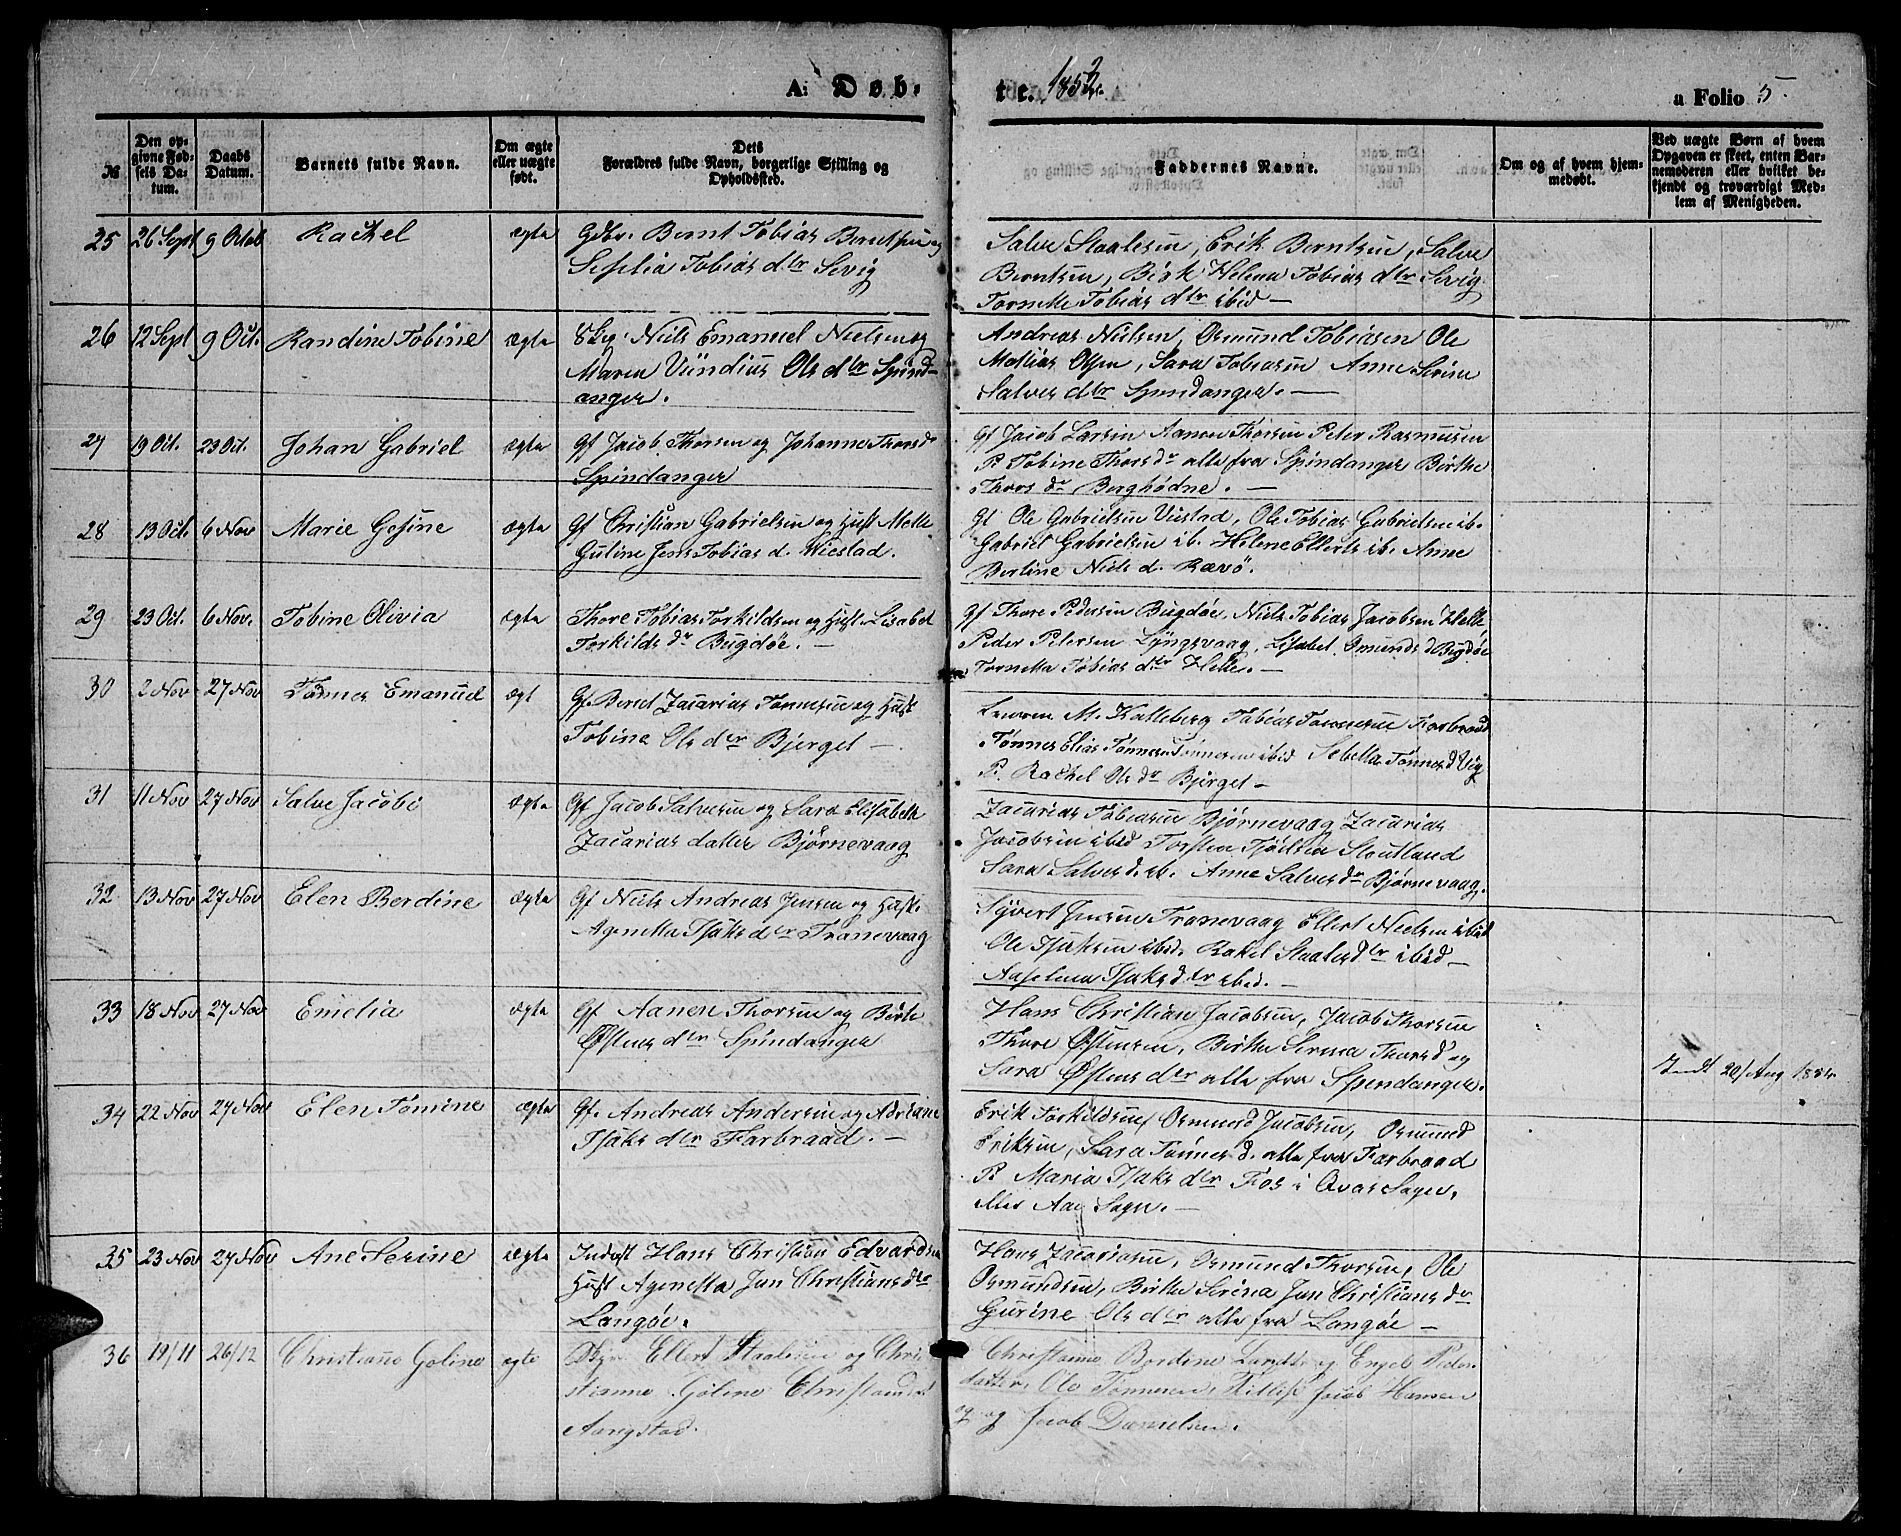 A: Døb- te. 1852. a Folio 5.
№
Den opgivne Fødsels Datum.
Daabs Datum.
Barnets fulde Navn.
Om ægte eller uægte født.
Dets Forældres fulde Navn, borgerlige Stilling og Opholdssted.
Faddernes Navne.
Om og af hvem hjemmedøbt.
Ved uægte Børn af hvem Opgaven er skeet, enten Barnemoderen eller hvilket bekjendt og troværdigt Medlem af Menigheden.
25 26 Sept 9 Octob Rachel ægte Gdbr. Bernt Tobias Berntsen og
Sefelia Tobias dtr Sevig
Salve Staalesen, Erik Berntsen, Salve
Berntsen, Helena Tobias dtr Sevig.
Tornette Tobias dtr ibid —
26 12 Sept 9 Oct. Randine Tobine ægte Niels Emanuel Nielsen og
Maren Ols dtr Spind-
anger.
Andreas Nielsen, Osmund Tobiasen Ole
Mathias Olsen, Sara Tobiasen Anne Serine
Salves dtr Spindanger. —
27 19 Oct. 23 Oct. Johan Gabriel ægte Gf Jacob Thorsen og Johanne Thorsd.
Spindanger
Gf Jacob Larsen Aanen Thorsen Peter Rasmusen
P. Tobine Thorsdr alle fra Spindanger Birthe
Thors dr Berghødne. —
28 13 Oct. 6 Nov Marie Gesine ægte Gf Christian Gabrielsen og Hust Mette
Guline Jens Tobias d. Wiestad.
Gf Ole Gabrielsen Viestad, Ole Tobias Gabrielsen ib.
Gabriel Gabrielsen ib. Helene Ellerts ib. Anne
Bertine Niels d. Ravø.
29 23 Oct. 6 Nov. Tobine Olivia ægte Thore Tobias Torkildsen og Hust. Lisabet
Torkilds dr Bugdøe. —
Gf Thore Pedersen Bugdøe, Niels Tobias Jacobsen Helle
Peder Petersen Lyngsvaag, Lisabet Omunds d Bugdøe
Tornette Tobias dtr Helle. —
30 2 Nov 27 Nov Tønnes Emanuel ægt Gf. Berent Zacarias Tønnesen og Hust
Tobine Ols dtr Bjerget —
M. Kalleberg Tobias Tønnesen Farbraad
Tønnes Elias Tønnesen ibid Sebella Tønnes d Vig
P. Rachel Ols dr Bjerget —
31 11 Nov 27 Nov Salve Jacobi ægte Gf Jacob Salvesen og Sara Elisabeth
Zacarias datter Bjørnevaag
Zacarias Tobiasen Bjørnevaag Zacarias
Jacobsen ibid Torsten Stoutland
Sara Salves d. ib. Anne Salves dr Bjørnevaag.
32 13 Nov 27 Nov Elen Berdine ægte Gf Niels Andreas Jensen og Hust.
Agnetta Isaks dtr Tranevaag
Syvert Jensen Tranevaag Ellert Nielsen ibid
Ole Isaksen ibid. Rakel Staales dtr ibid —
Isaks dtr ibid. —
33 18 Nov 27 Nov Emelia ægte Gf Aanen Thorsen og Birte
Østens dtr Spindanger
Hans Christian Jacobsen, Jacob Thorsen
Thore Østensen, Birthe Serina Thorsd og
Sara Østens dtr alle fra Spindanger.
20/ Aug 1884
34 22 Nov 27 Nov Elen Tomine ægte Gf. Andreas Andersen og Adriane
Isaks dtr Farbraad. —
Erik Torkildsen, Osmund Jacobsen, Osmund
Eriksen, Sara Tønnes d. alle fra Farbraad
P. Maria Isaks dtr Fos i Qvas Sogn,
Sogn. —
35 23 Nov 27 Nov Ane Serine ægte Indst Hans Christian Edvardsen
Hust Agnetta Jan Christians dtr
Langøe.
Hans Zacariasen, Osmund Thorsen, Ole
Osmundsen, Birthe Serina Jan Christians dr
Gurine Ols dtr alle fra Langøe —
36 19/11 26/12 Christiane Goline ægte Ellert Staalesen og Chri-
stianne Goline
Aangstad.
Christianne Bordine og Engel Peder-
datter, Ole Tønnesen, Jacob Hansen
og Jacob Danielsen.